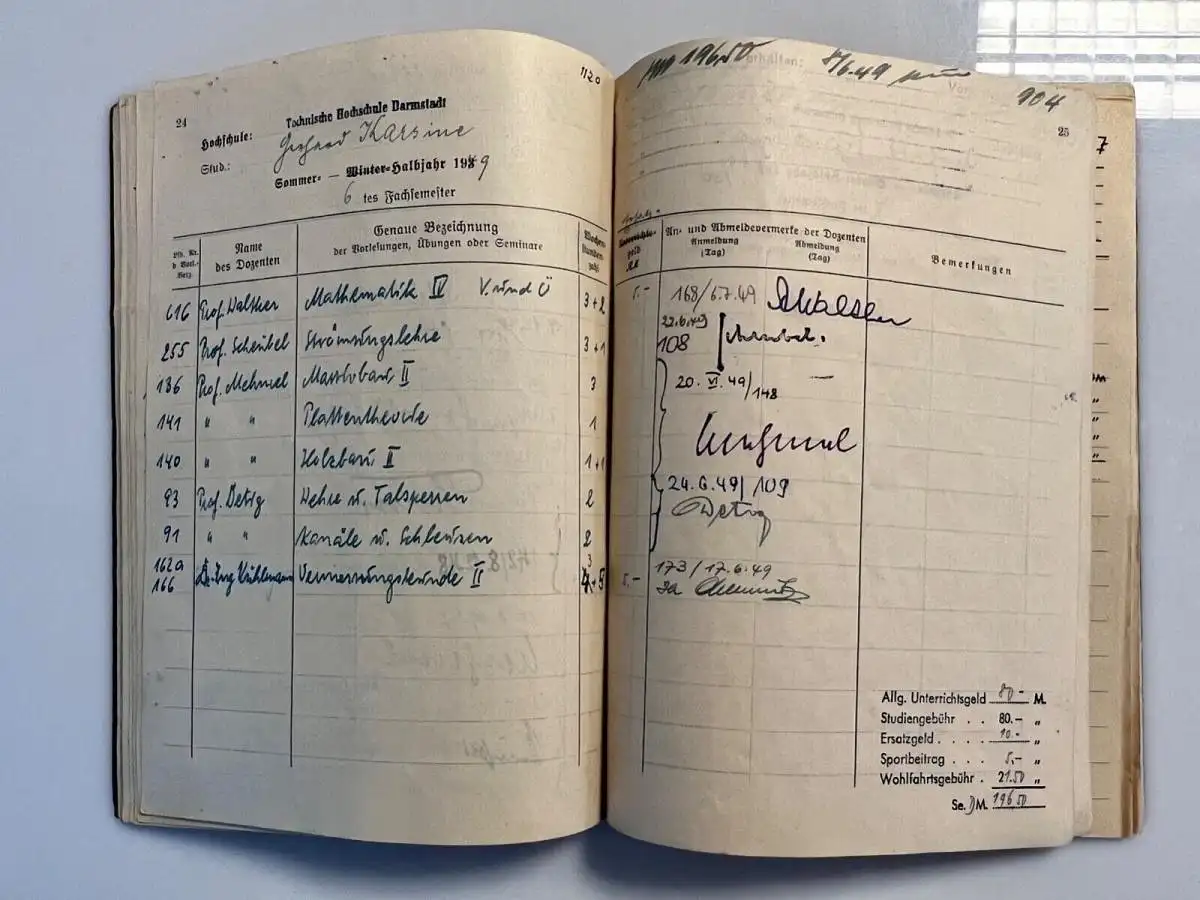 1120
24
Hochschule: Technische Hochschule Darmstadt
Stud.: Gerhard Karsine
Sommer- — Winter-Halbjahr 1949
6 tes Fachsemester
Lfd. Nr. d Vorl.-Verz.
Name des Dozenten
Genaue Bezeichnung der Vorlesungen, Übungen oder Seminare
Wochenstundenzahl
616 Prof. Walther Mathematik IV V. und Ü 3+2
255 Prof. Scheubel Strömungslehre 3+1
136 Prof. Mehmel Massivbau II 3
141 " " Plattentheorie 1
140 " " Holzbau II 1+1
93 Prof. Detig Wehre u. Talsperren 2
91 " " Kanäle u. Schleusen 2
162a
166 Dr. Ing Kuhlmann Vermessungskunde II
196.50 erhalten: 8/6.49
904
25
An- und Abmeldevermerke der Dozenten
Anmeldung (Tag)
Abmeldung (Tag)
Bemerkungen
5.- 168/6.7.49 AWalther
22.6.49
108
20. VI. 49/148 —
24.6.49/109
Detig
5.- 173/17.6.49
Allg. Unterrichtsgeld 80- M.
Studiengebühr . . 80.- "
Ersatzgeld . . . . 10.- "
Sportbeitrag . . . 5.- "
Wohlfahrtsgebühr . 21.50 "
Se. DM. 196.50
7